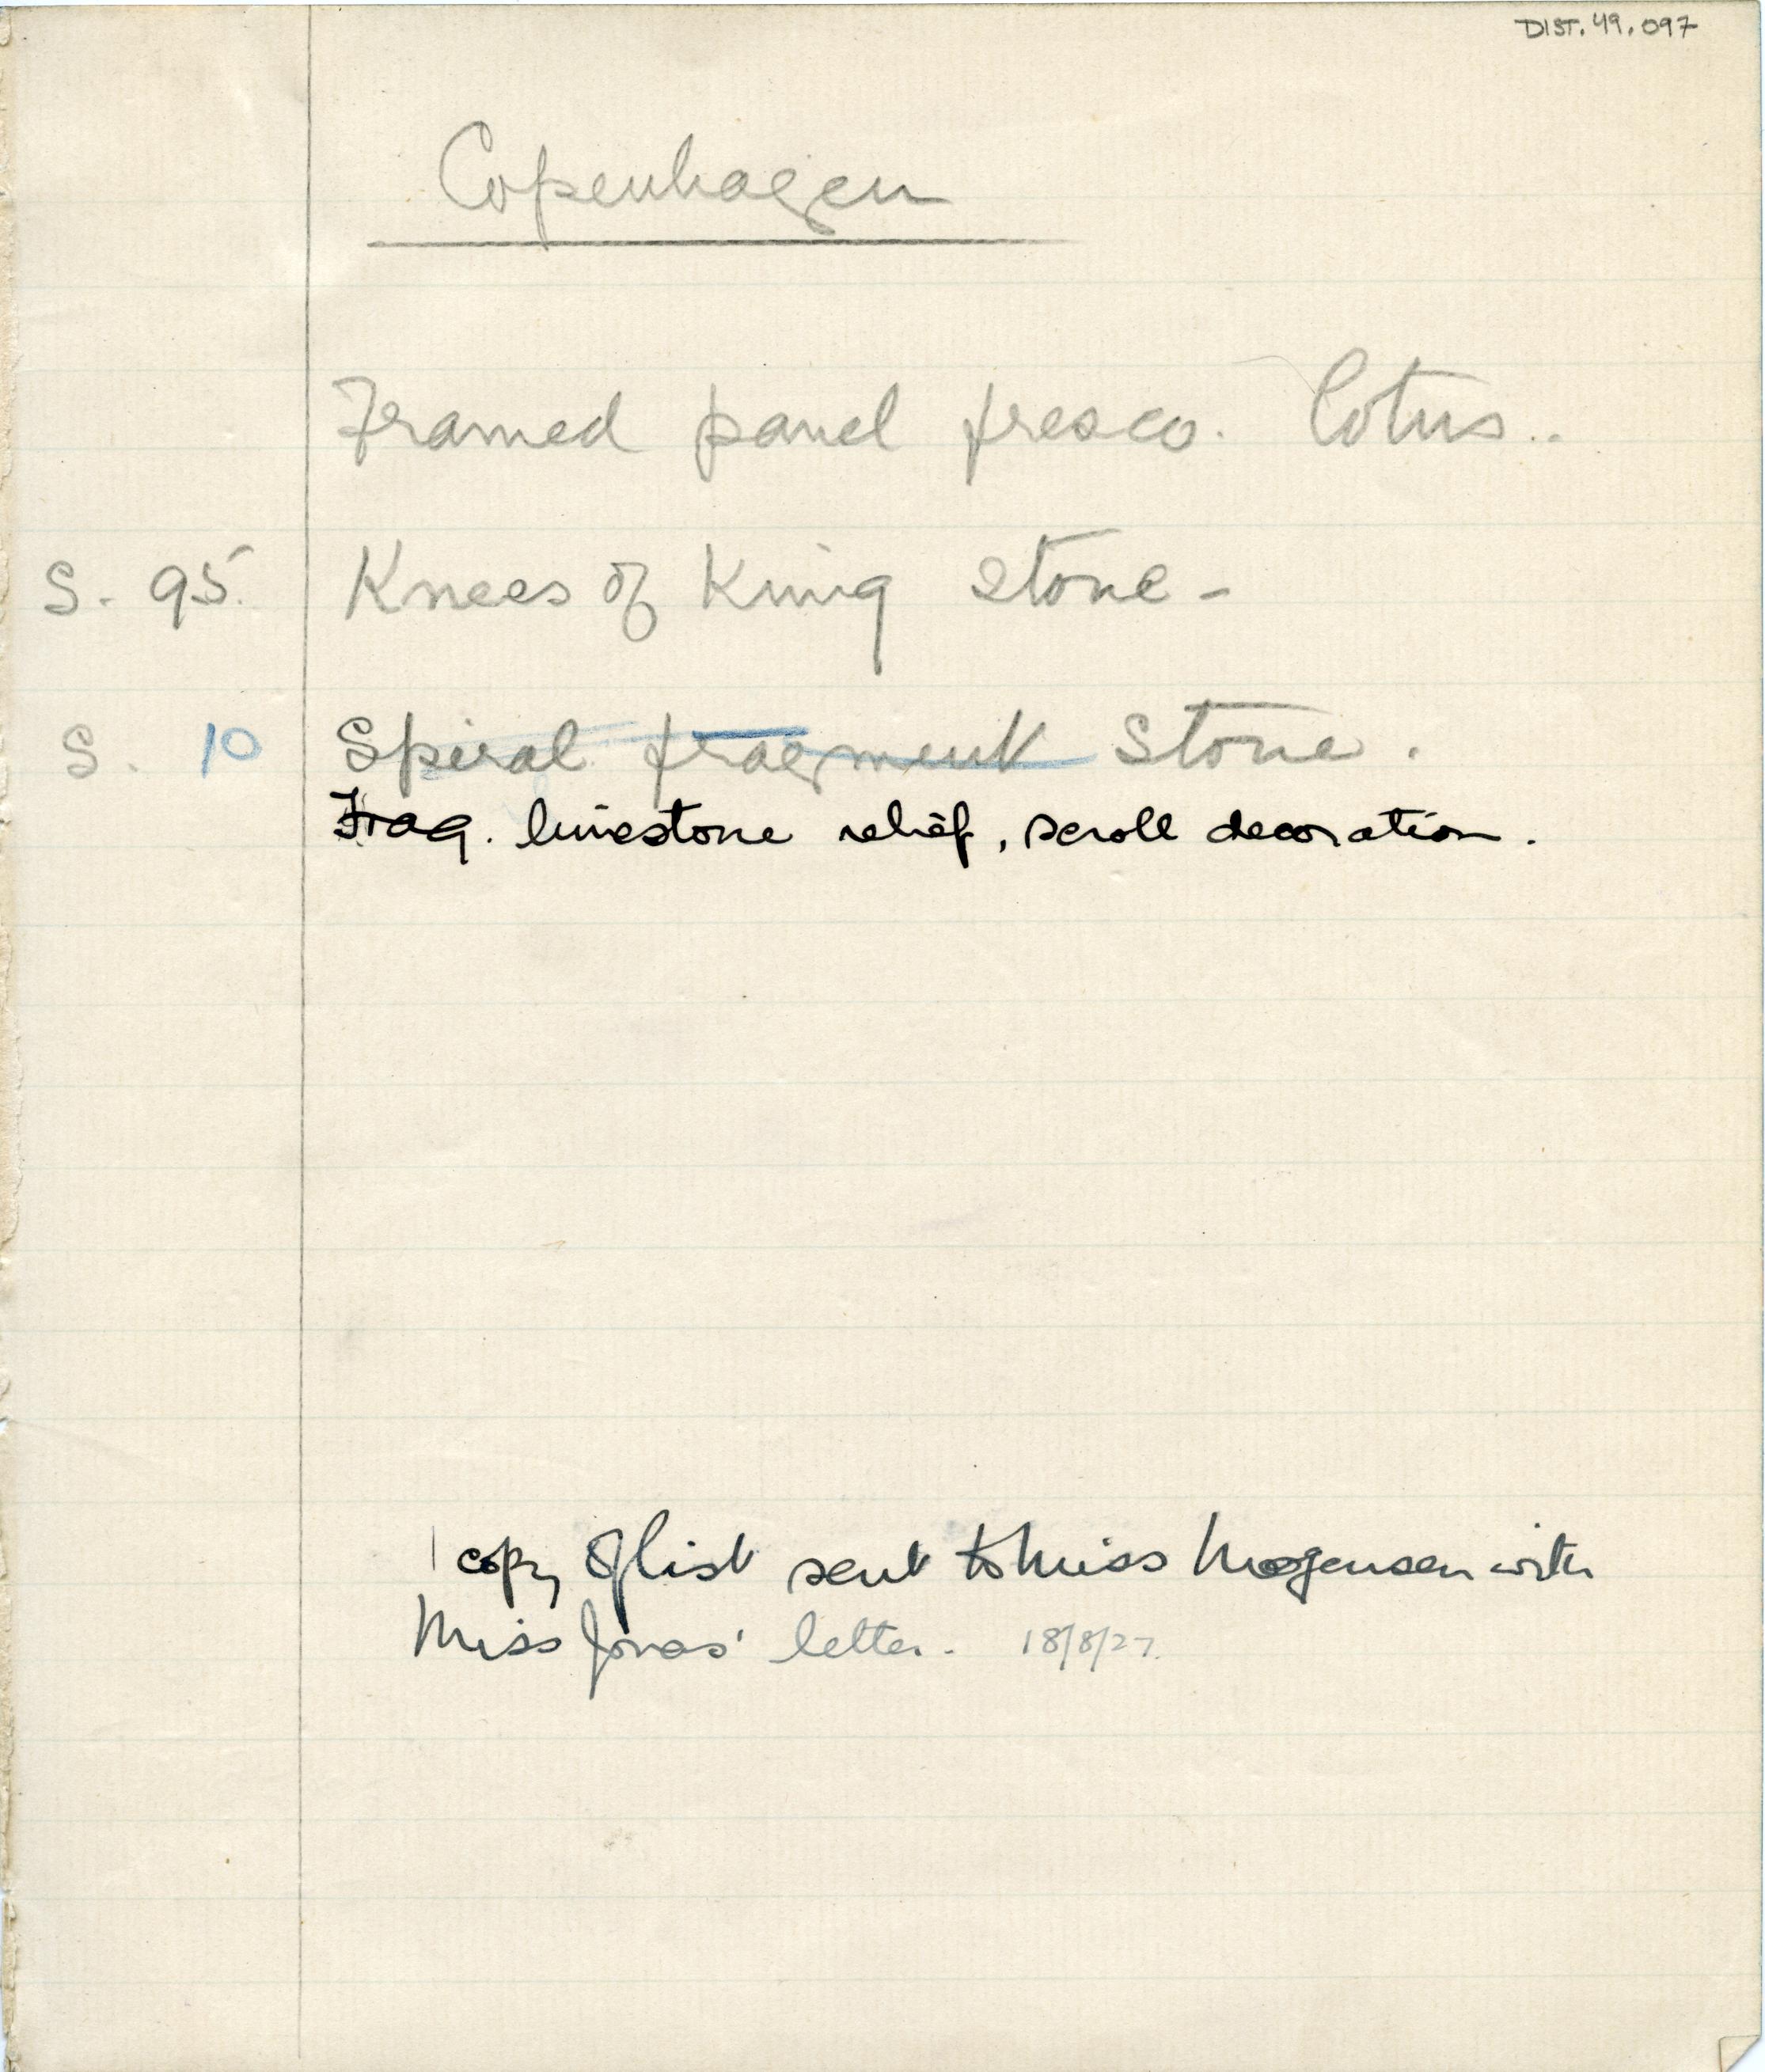 DIST. 49.097
Copenhagen
Framed panel fresco. lotus..
S. 95. Knees of King Stone -
S. 10 Spiral fragment Stone.
Frag. limestone relief, scroll decoration.
1 copy of list sent to Miss Mogensen with
Miss Jonas' letter. 18/8/27.